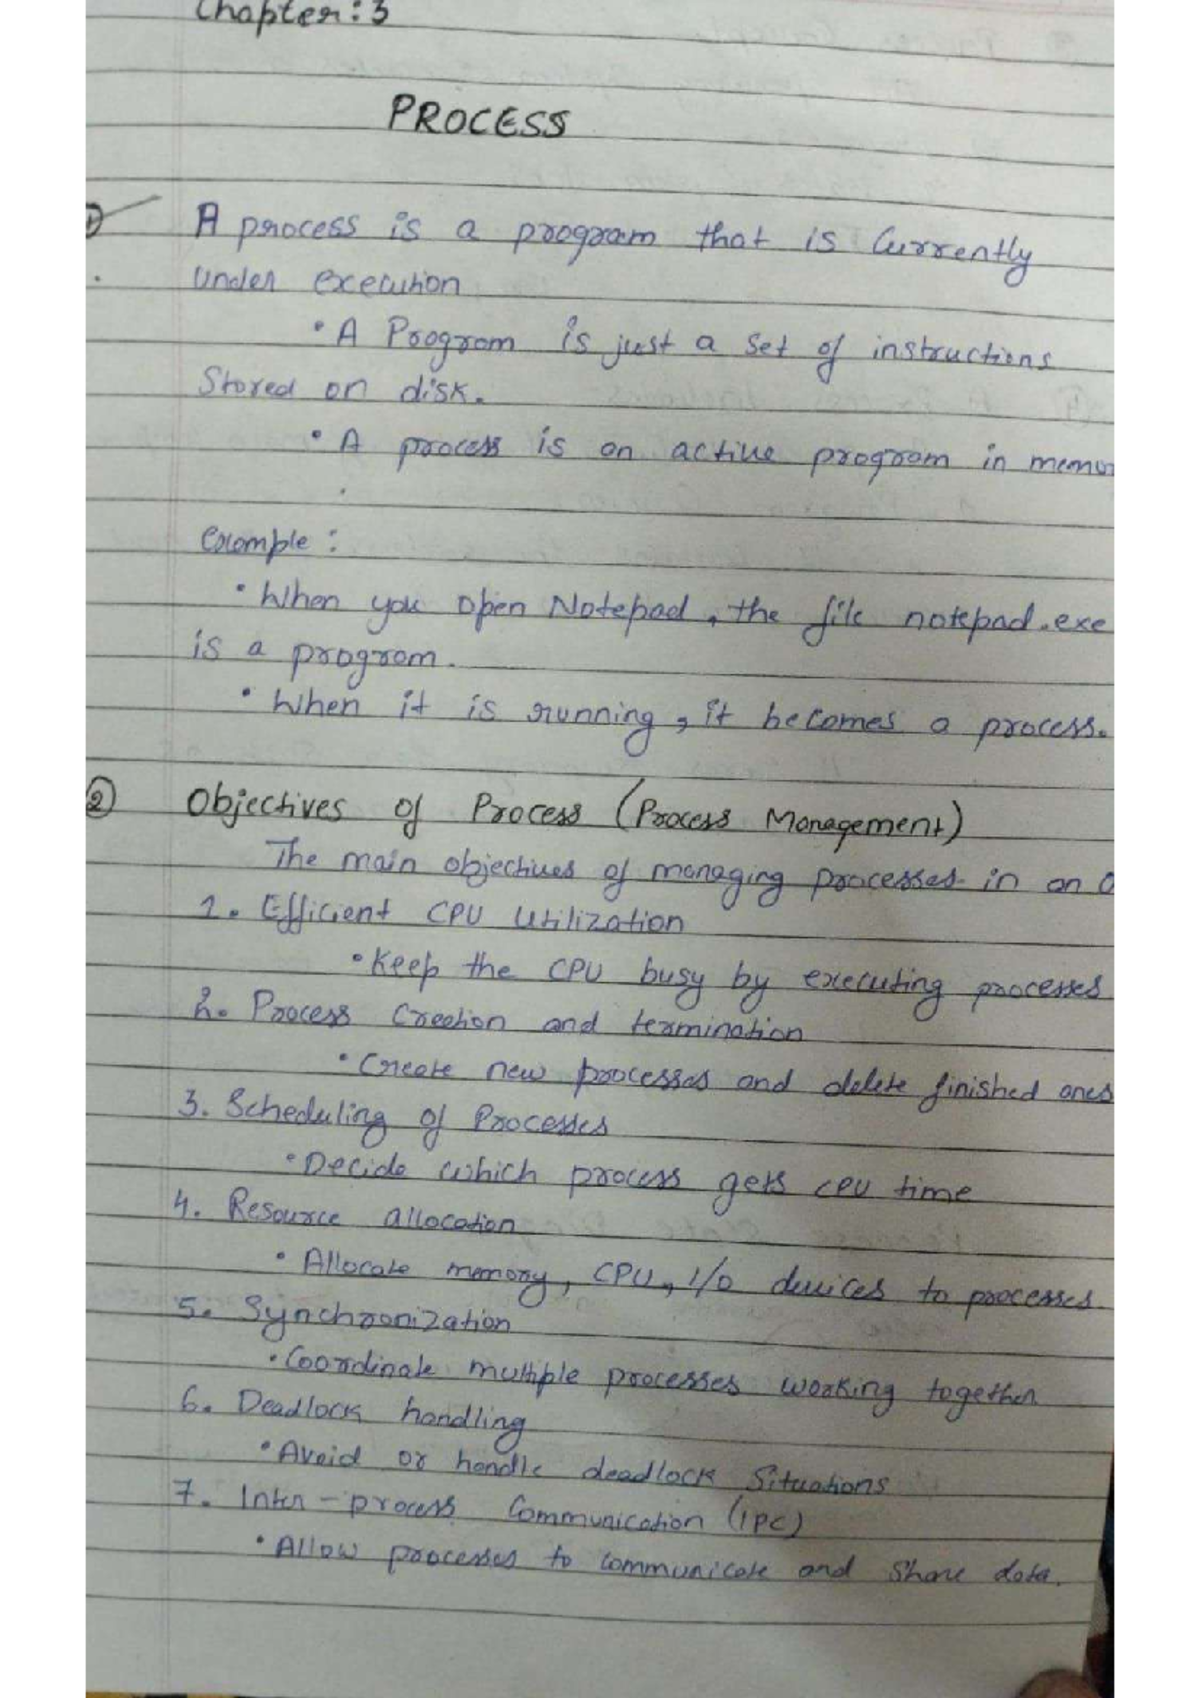 Chapter: 3
PROCESS
1) A process is a program that is Currently
under execution
• A Program is just a set of instructions
Stored on disk.
• A process is an active program in memor
Example:
• When you open Notepad, the file notepad.exe
is a program.
• When it is running, it becomes a process.
2) Objectives of Process (Process Management)
The main objectives of managing processes in an O
1. Efficient CPU Utilization
• Keep the CPU busy by executing processes
2. Process Creation and termination
• Create new processes and delete finished ones
3. Scheduling of Processes
• Decide which process gets CPU time
4. Resource allocation
• Allocate memory, CPU, I/O devices to processes.
5. Synchronization
• Coordinate multiple processes working together
6. Deadlock handling
• Avoid or handle deadlock Situations
7. Inter-process Communication (IPC)
• Allow processes to communicate and share data.